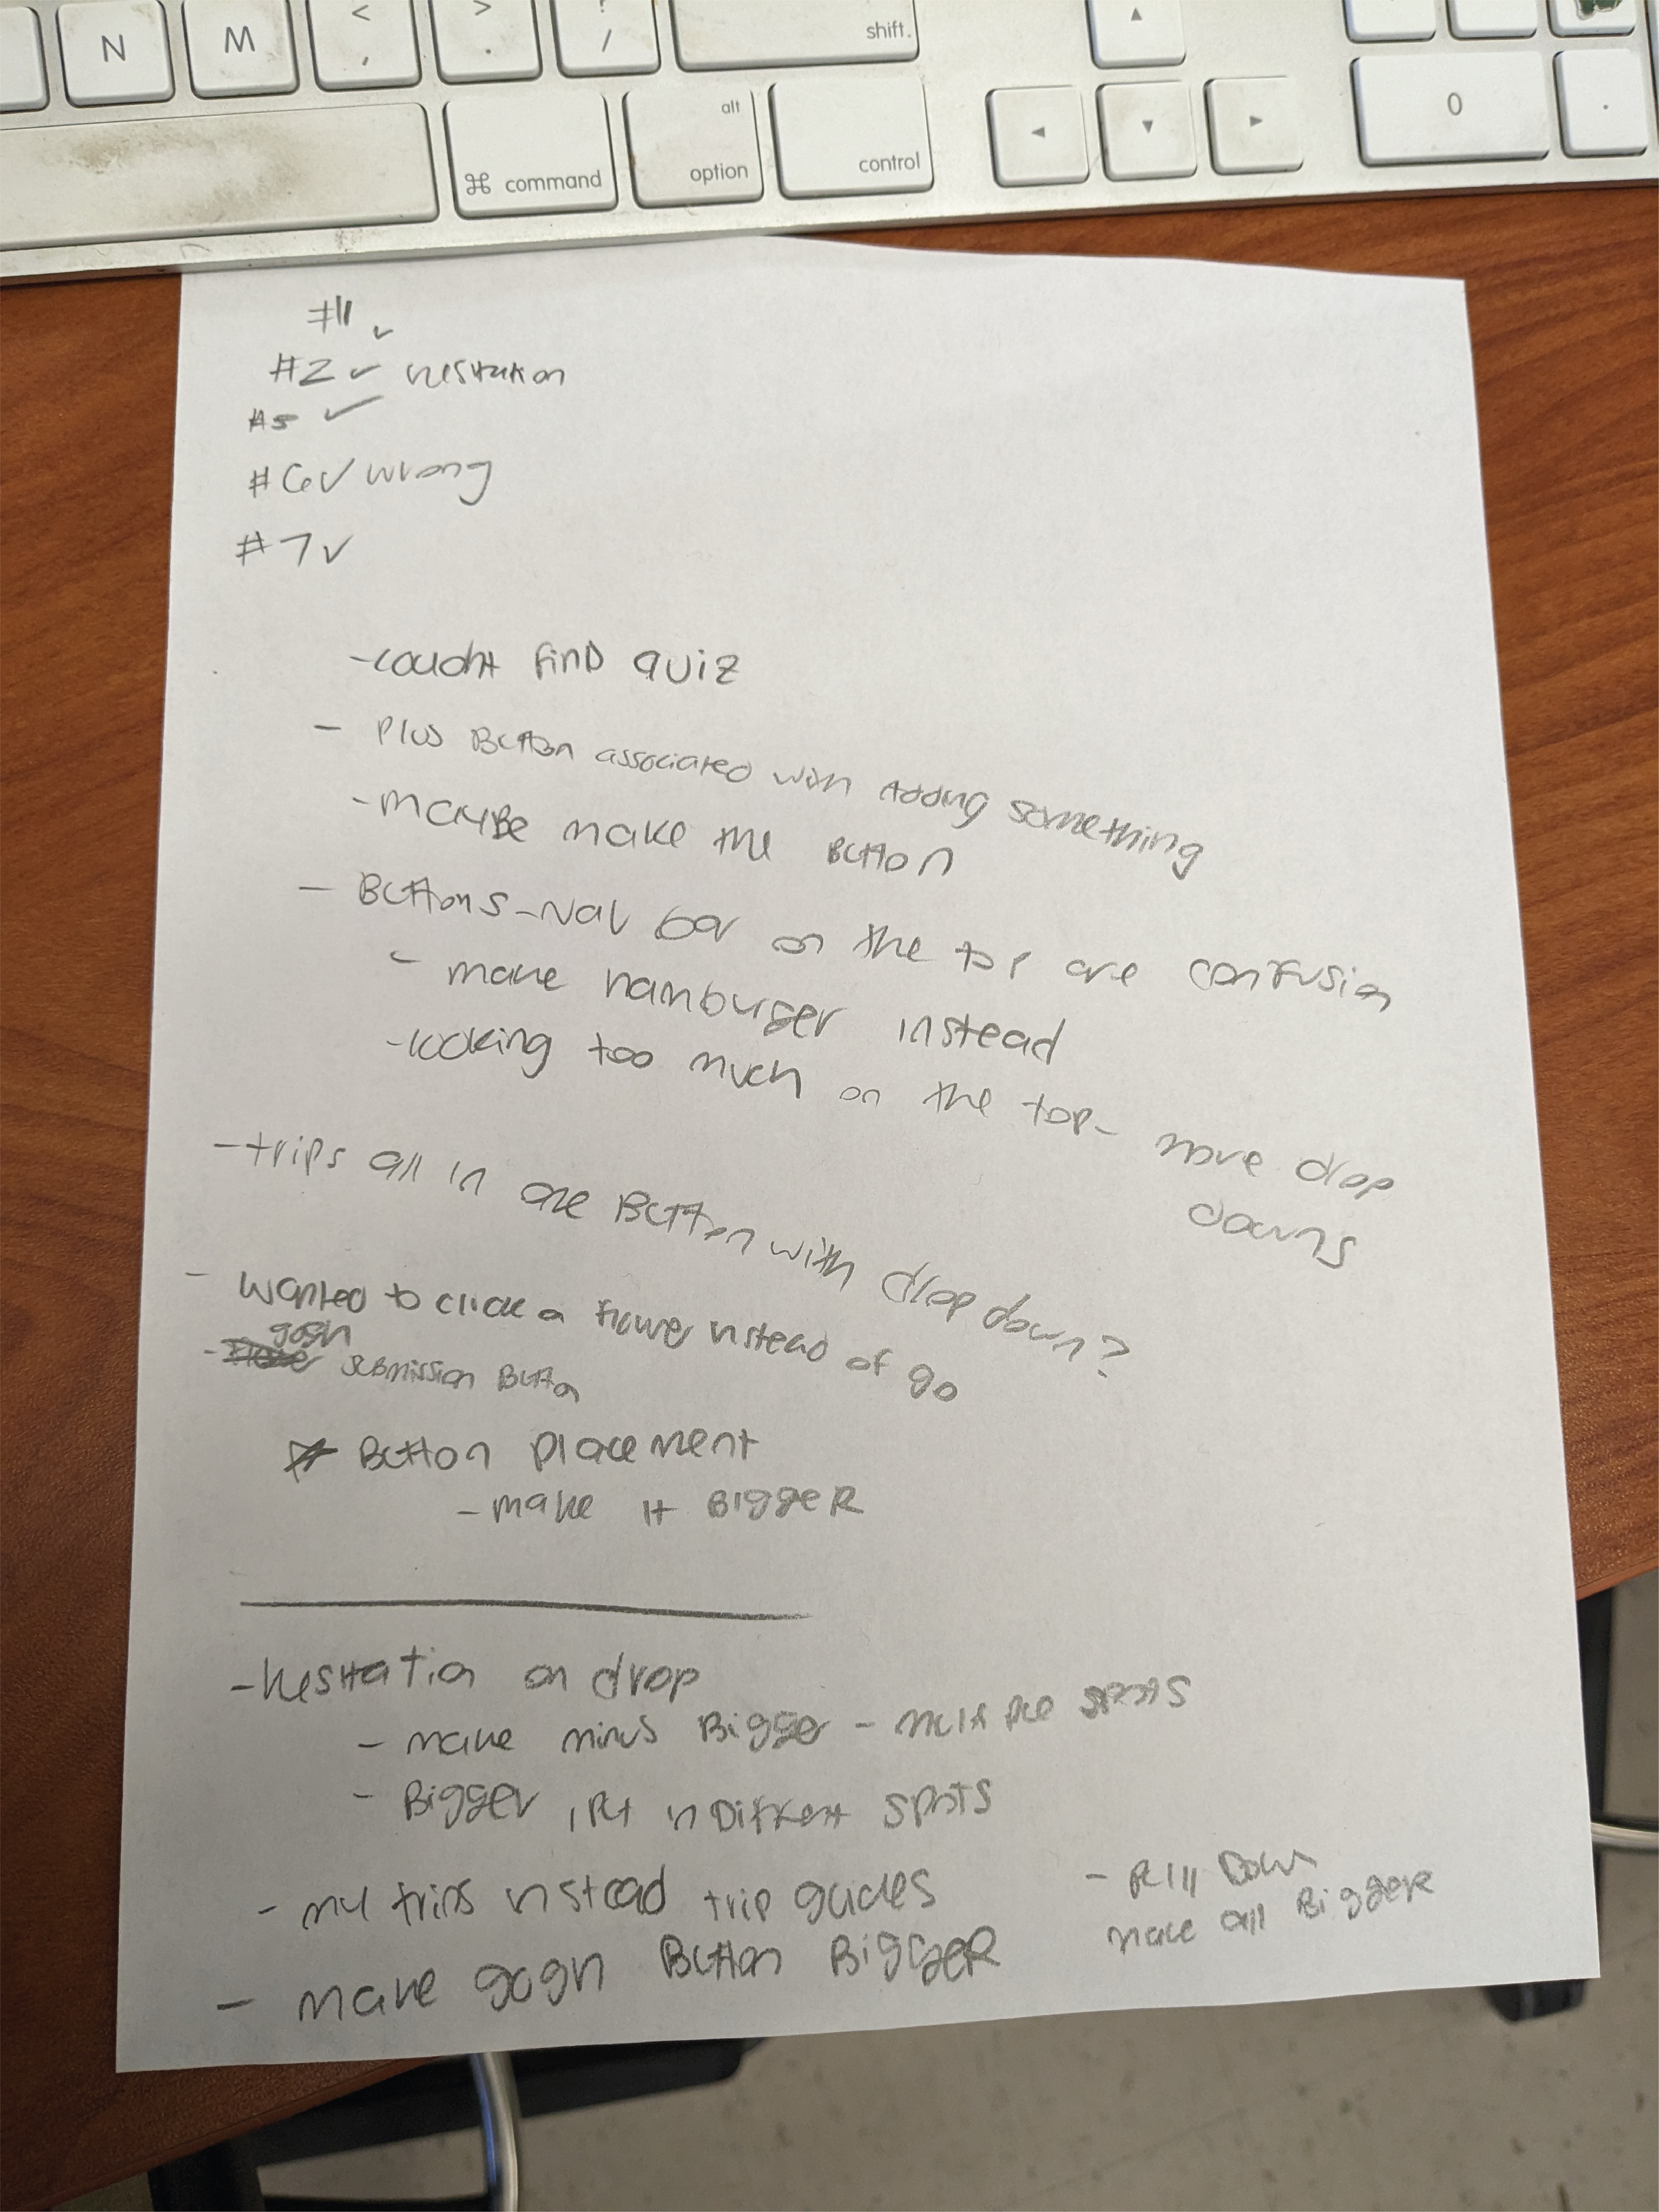 N M < , > . ? / shift
⌘ command alt option control ◄ ▲ ▼ ► 0 .
#1
#2 ✓ hesitation
#5 ✓
#6 ✓ wrong
#7 ✓
- couldnt find quiz
- Plus Button associated with Adding something
- maybe make the Button
- Buttons - Nav bar on the top are confusion
- make hamburger instead
- looking too much on the top - more drop
downs
- trips all in one Button with drop down?
- wanted to click a flower instead of go
gogh
- submission Button
Button placement
- make it Bigger
- hesitation on drop
- make minus Bigger - multiple spots
- Bigger, Put in Different spots
- my trips instead trip guides
- Pull Down
make all Bigger
- make gogh Button Bigger